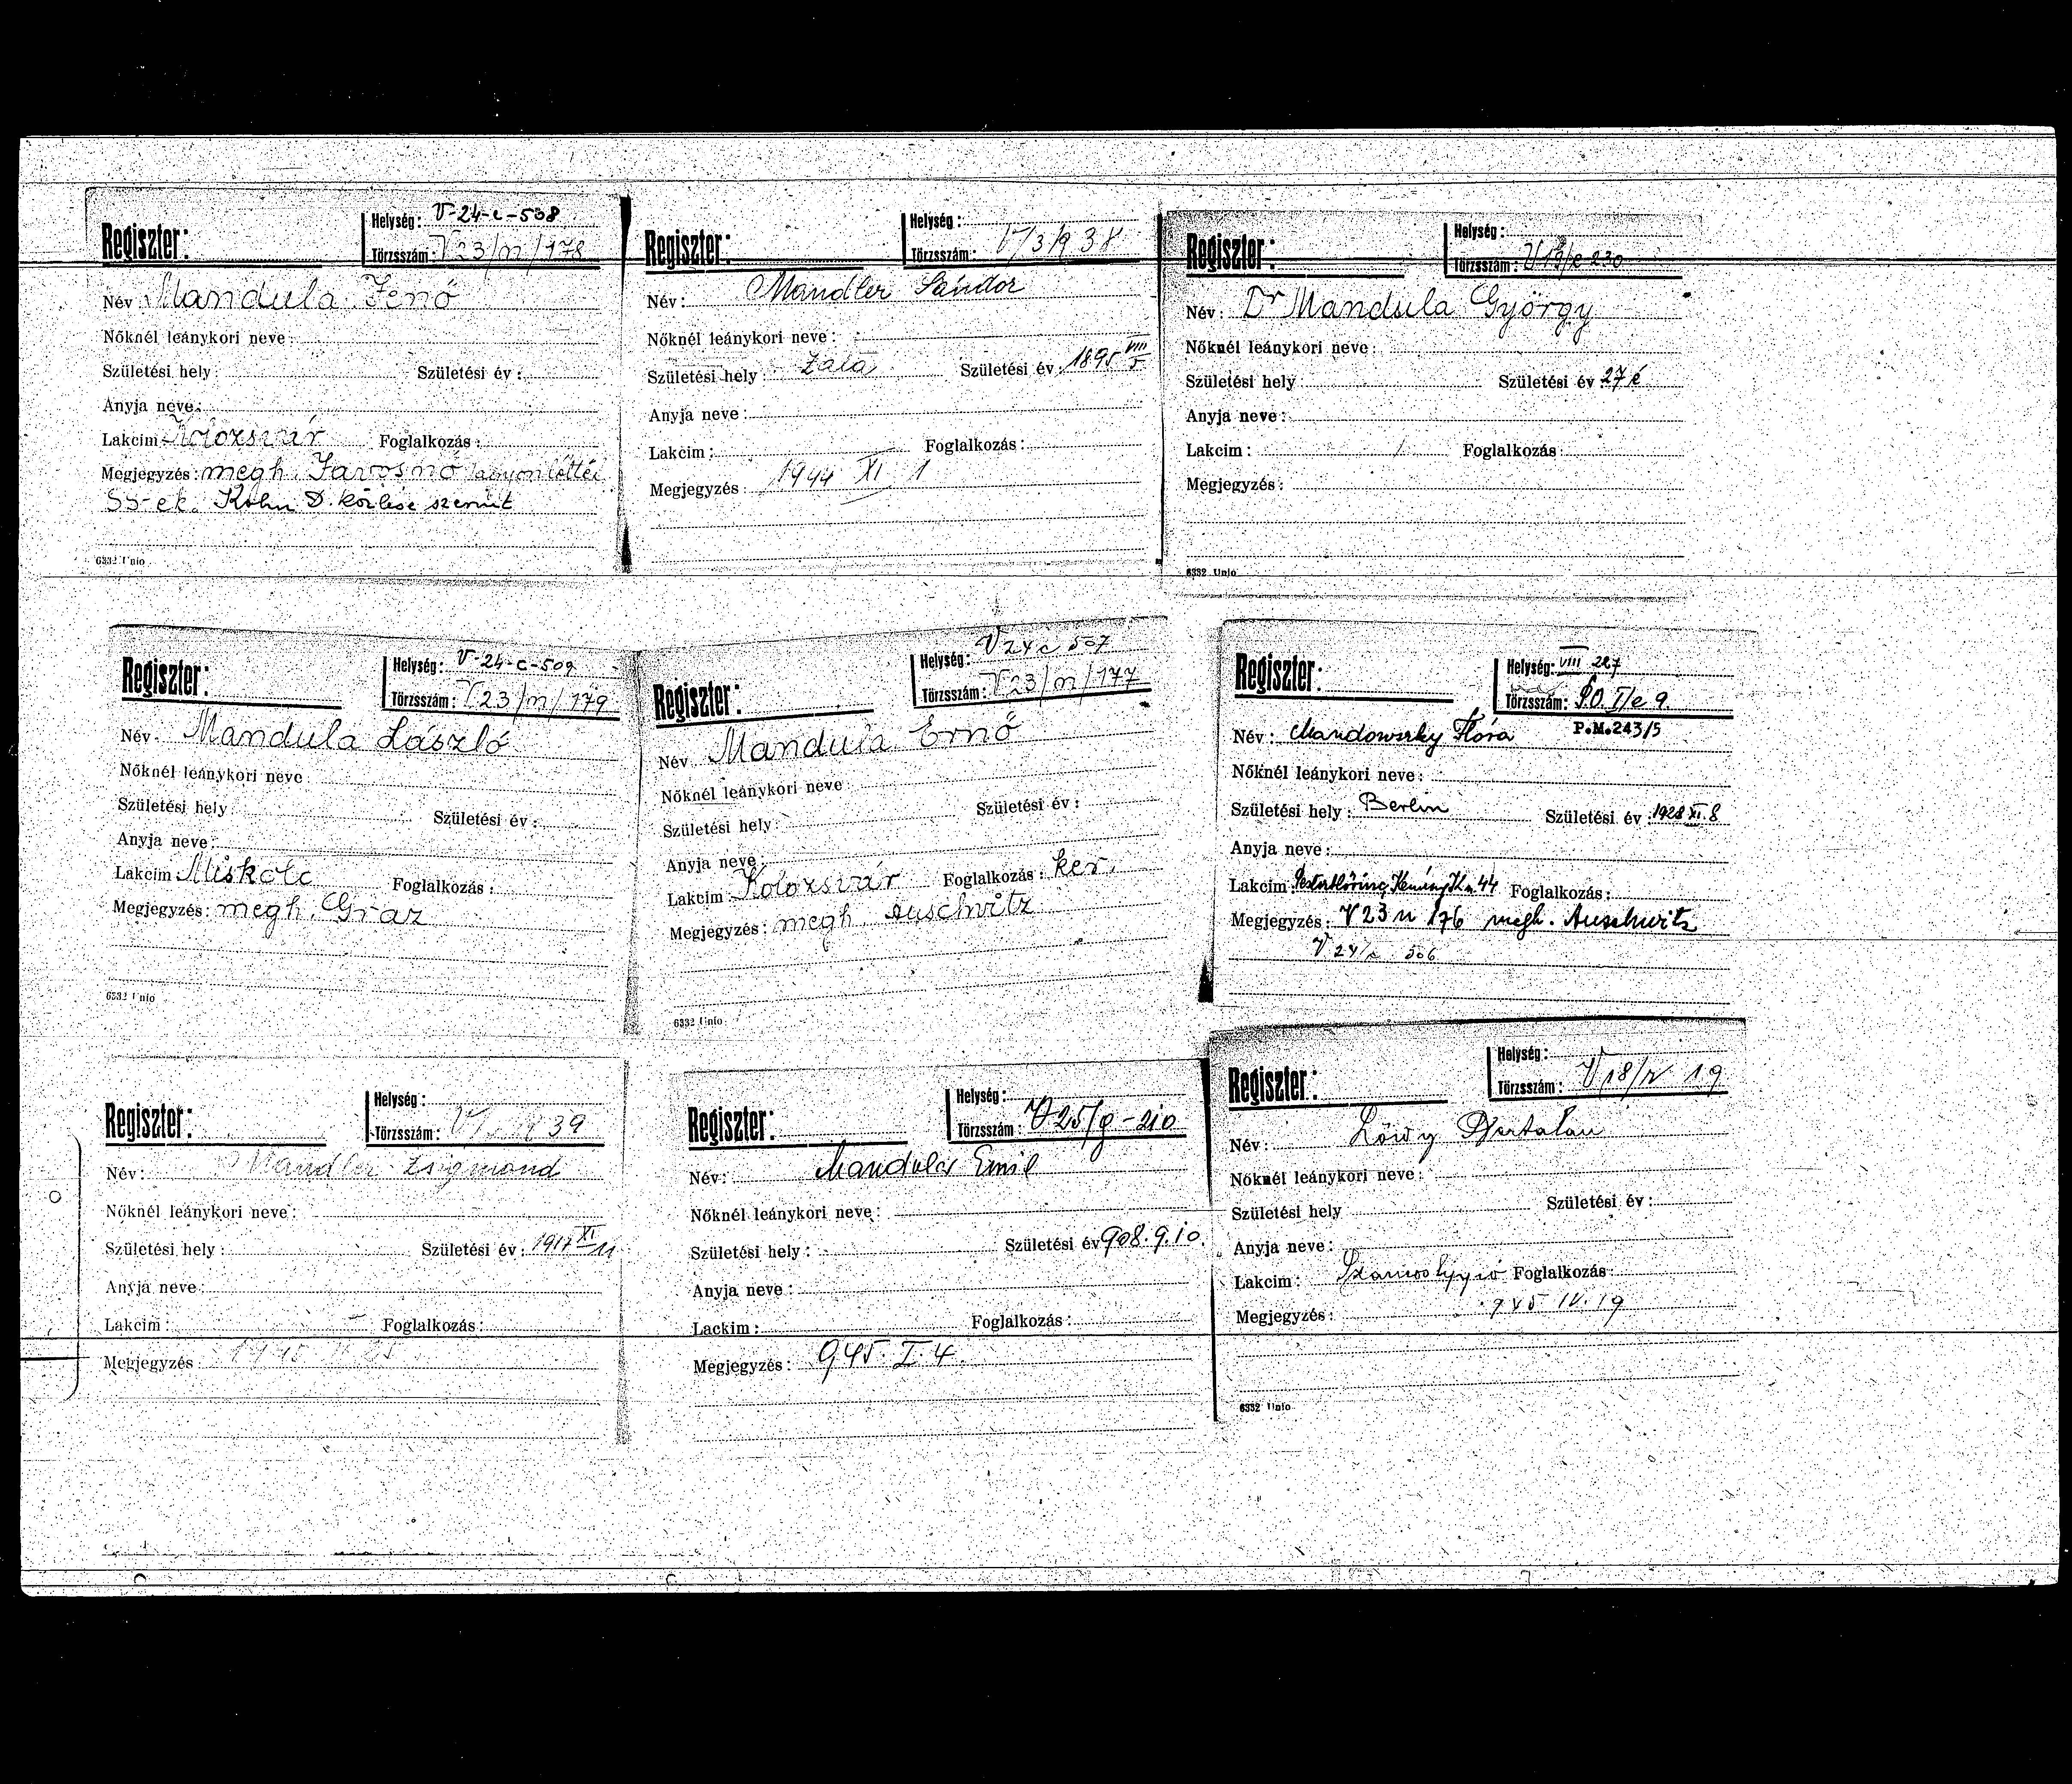 Regiszter:
Helység: V-24-c-508
Törzsszám: V23/n/178
Név Mandula Jenő
Nőknél leánykori neve:
Születési hely: Születési év:
Anyja neve:
Lakcim Kolozsvár Foglalkozás:
Megjegyzés: megh. Javosnó agyonlőtték
SS-ek. Kohn D. közlése szerint
6332 Unio
Regiszter:
Helység:
Törzsszám: V/3/9 38
Név: Mandler Sándor
Nőknél leánykori neve:
Születési hely: Zala Születési év: 1895 VIII 5
Anyja neve:
Lakcim: Foglalkozás:
Megjegyzés: 1944 XI 1
Regiszter:
Helység:
Törzsszám: V19/e 230
Név: Dr Mandula György
Nőknél leánykori neve:
Születési hely: Születési év 27 é
Anyja neve:
Lakcim: Foglalkozás:
Megjegyzés:
6332 Unio
Regiszter:
Helység: V-24-c-509
Törzsszám: V23/n/179
Név. Mandula László
Nőknél leánykori neve
Születési hely: Születési év:
Anyja neve:
Lakcim Miskolc Foglalkozás:
Megjegyzés: megh. Graz
6332 Unio
Regiszter:
Helység: V24c 507
Törzsszám: V23/n/177
Név. Mandula Ernő
Nőknél leánykori neve
Születési hely: Születési év:
Anyja neve:
Lakcim Kolozsvár Foglalkozás: ker.
Megjegyzés: megh. Auschvitz
6332 Unio
Regiszter:
Helység: VIII 227
Törzsszám: P.O. I/e 9.
P.M.243/5
Név: Mandowsky Flóra
Nőknél leánykori neve:
Születési hely: Berlin Születési év: 1928 XI. 8
Anyja neve:
Lakcim Pesterlőrinc, Kemény 44 Foglalkozás:
Megjegyzés: V 23 n 176 megh. Auschwitz
V 24/c 506
Regiszter:
Helység:
Törzsszám: 39
Név: Mandler Zsigmond
Nőknél leánykori neve:
Születési hely: Születési év: 1917 XI 11
Anyja neve:
Lakcim: Foglalkozás:
Megjegyzés
Regiszter:
Helység:
Törzsszám: V25/g-210
Név: Mandula Emil
Nőknél leánykori neve:
Születési hely: Születési év 908.9.10.
Anyja neve:
Lackim: Foglalkozás:
Megjegyzés: 945. I. 4.
Regiszter:
Helység:
Törzsszám: V18/ 19
Név: Löwy Bertalan
Nőknél leánykori neve:
Születési hely Születési év:
Anyja neve:
Lakcim: Foglalkozás:
Megjegyzés: 945 IV. 19
6332 Unio